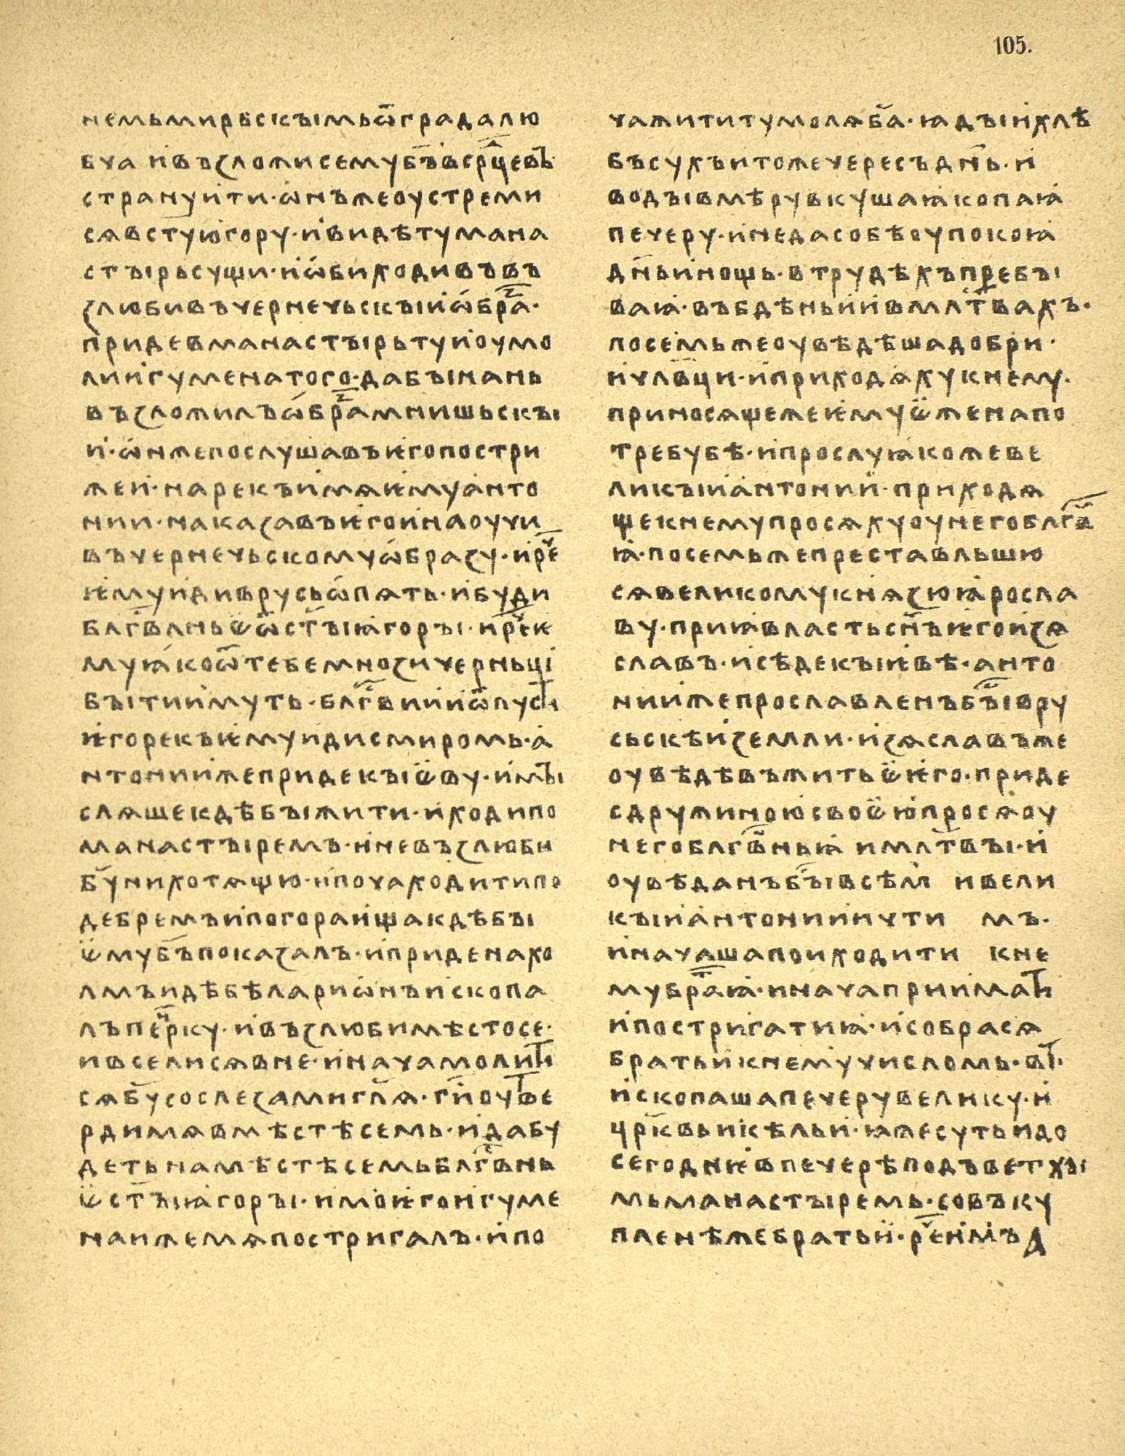 105.
немьмирьскымьѿградалю
бча и҆възложисемубъ҃всрⷣцевъ·
странуи҆ти·ѡ҆нъжеоустреми
сѧвст҃ую҆гору·и҆видѣтумана
стырьсущи·и҆ѡ҆биходивъвъ
злюбивъчернечьскыи҆ѡ҆браⷥ·
придевманастырьтуи҆оумо
лии҆гуменатого·дабынань
възложилъѡ҆браⷥмнишьскы
и҆·ѡ҆нжепослушавъѥгопостри
жеи҆·нарекъи҆мѧѥ҆муанто
нии·наказавъѥ҆гои҆наоучи
въчернечьскомуѡ҆бразу·и҆реⷱ
ѥ҆муи҆дивърусьѡ҆пѧть·и҆буди
блгⷭ҇влньеѿст҃ыꙗ҆горы·и҆реⷱѥ
муꙗ҆коѿтебемнозичерньци
бытии҆муть·блгⷭ҇вии҆и҆ѿпустⷭи
ѥ҆горекъѥ҆муи҆дисмиромь·а҆
нтонииж҆епридекыѥву·и҆мы
слѧшекдѣбыжити·и҆ходипо
манастыремъ·и҆невъзлюби
бу҃нихотѧщю·и҆почаходитипо
дебремъи҆погорамищакдѣбы
ѥмубъ҃показалъ·и҆приденахо
лмъидѣбѣлариѡ҆нъи҆скопа
лъпечеⷬрку·и҆възлюбимѣстосе·
ивселисѧвне·и҆начамолитⷤи
сѧбу҃сослезамигл҃ѧ·гⷭ҇и҆оутве
рдимѧвмѣстѣсемь·и҆дабу
детьнамѣстѣсемьблгⷭ҇внь
ѥст҃ыꙗ҆горы·и҆моѥ҆гои҆гуме
наижемѧпостригалъ·и҆по
чажититумолѧба҃·ꙗдыи҆хлѣ
бъсухъитожечересъдн҃ь·и҆
водывмѣрувкушаꙗ҆копаꙗ҆
печеру·и҆недасобѣоупокоꙗ҆
дн҃ьи҆нощь·втрудѣхъпребы
ваꙗ҆·въбдѣньи҆и҆вмлт҃вахъ·
посемьжеоувѣдѣшадобри·
и҆члв҃ци·и҆приходѧхукнему·
приносѧщежеѥ҆муеженапо
требубѣ·и҆прослуꙗ҆кожеве
ликыи҆а҆нтонии҆·приходѧ
щекнемупросѧхуоунегоблгⷭ҇в
ꙗ҆·посемьжепреставльшю
сѧвеликомукнѧзюꙗ҆росла
ву·приꙗ҆властьсн҃ъѥ҆гои҆зѧ
славъ·и҆сѣдекыѥ҆вѣ·анто
ниижепрославленъбыⷭвру
сьскѣи҆земли·и҆зѧславъже
оувѣдѣвъжитьеѥ҆го·приде
сдружиноюсвоѥю҆просѧоу
негоблгⷭ҇вньꙗ҆ имлт҃вы·и҆
оувѣданъбыⷭвсѣмⷨ ивели
кыи҆а҆нтонии҆и҆чти мъ·
и҆начашапоиходити кне
мубраⷮꙗ·иначаприиматⷤи
и҆постригатиꙗ҆·и҆собрасѧ
братьи҆кнемучисломь·ві҃·
и҆скопашапечерувелику·и҆
црк҃вьи҆кѣльи҆·ꙗжесутьи҆до
сегоднѥ҆впечерѣподъветхы
мьманастыремь·совъку
пленѣжебратьи҆·реⷱи҆мъ